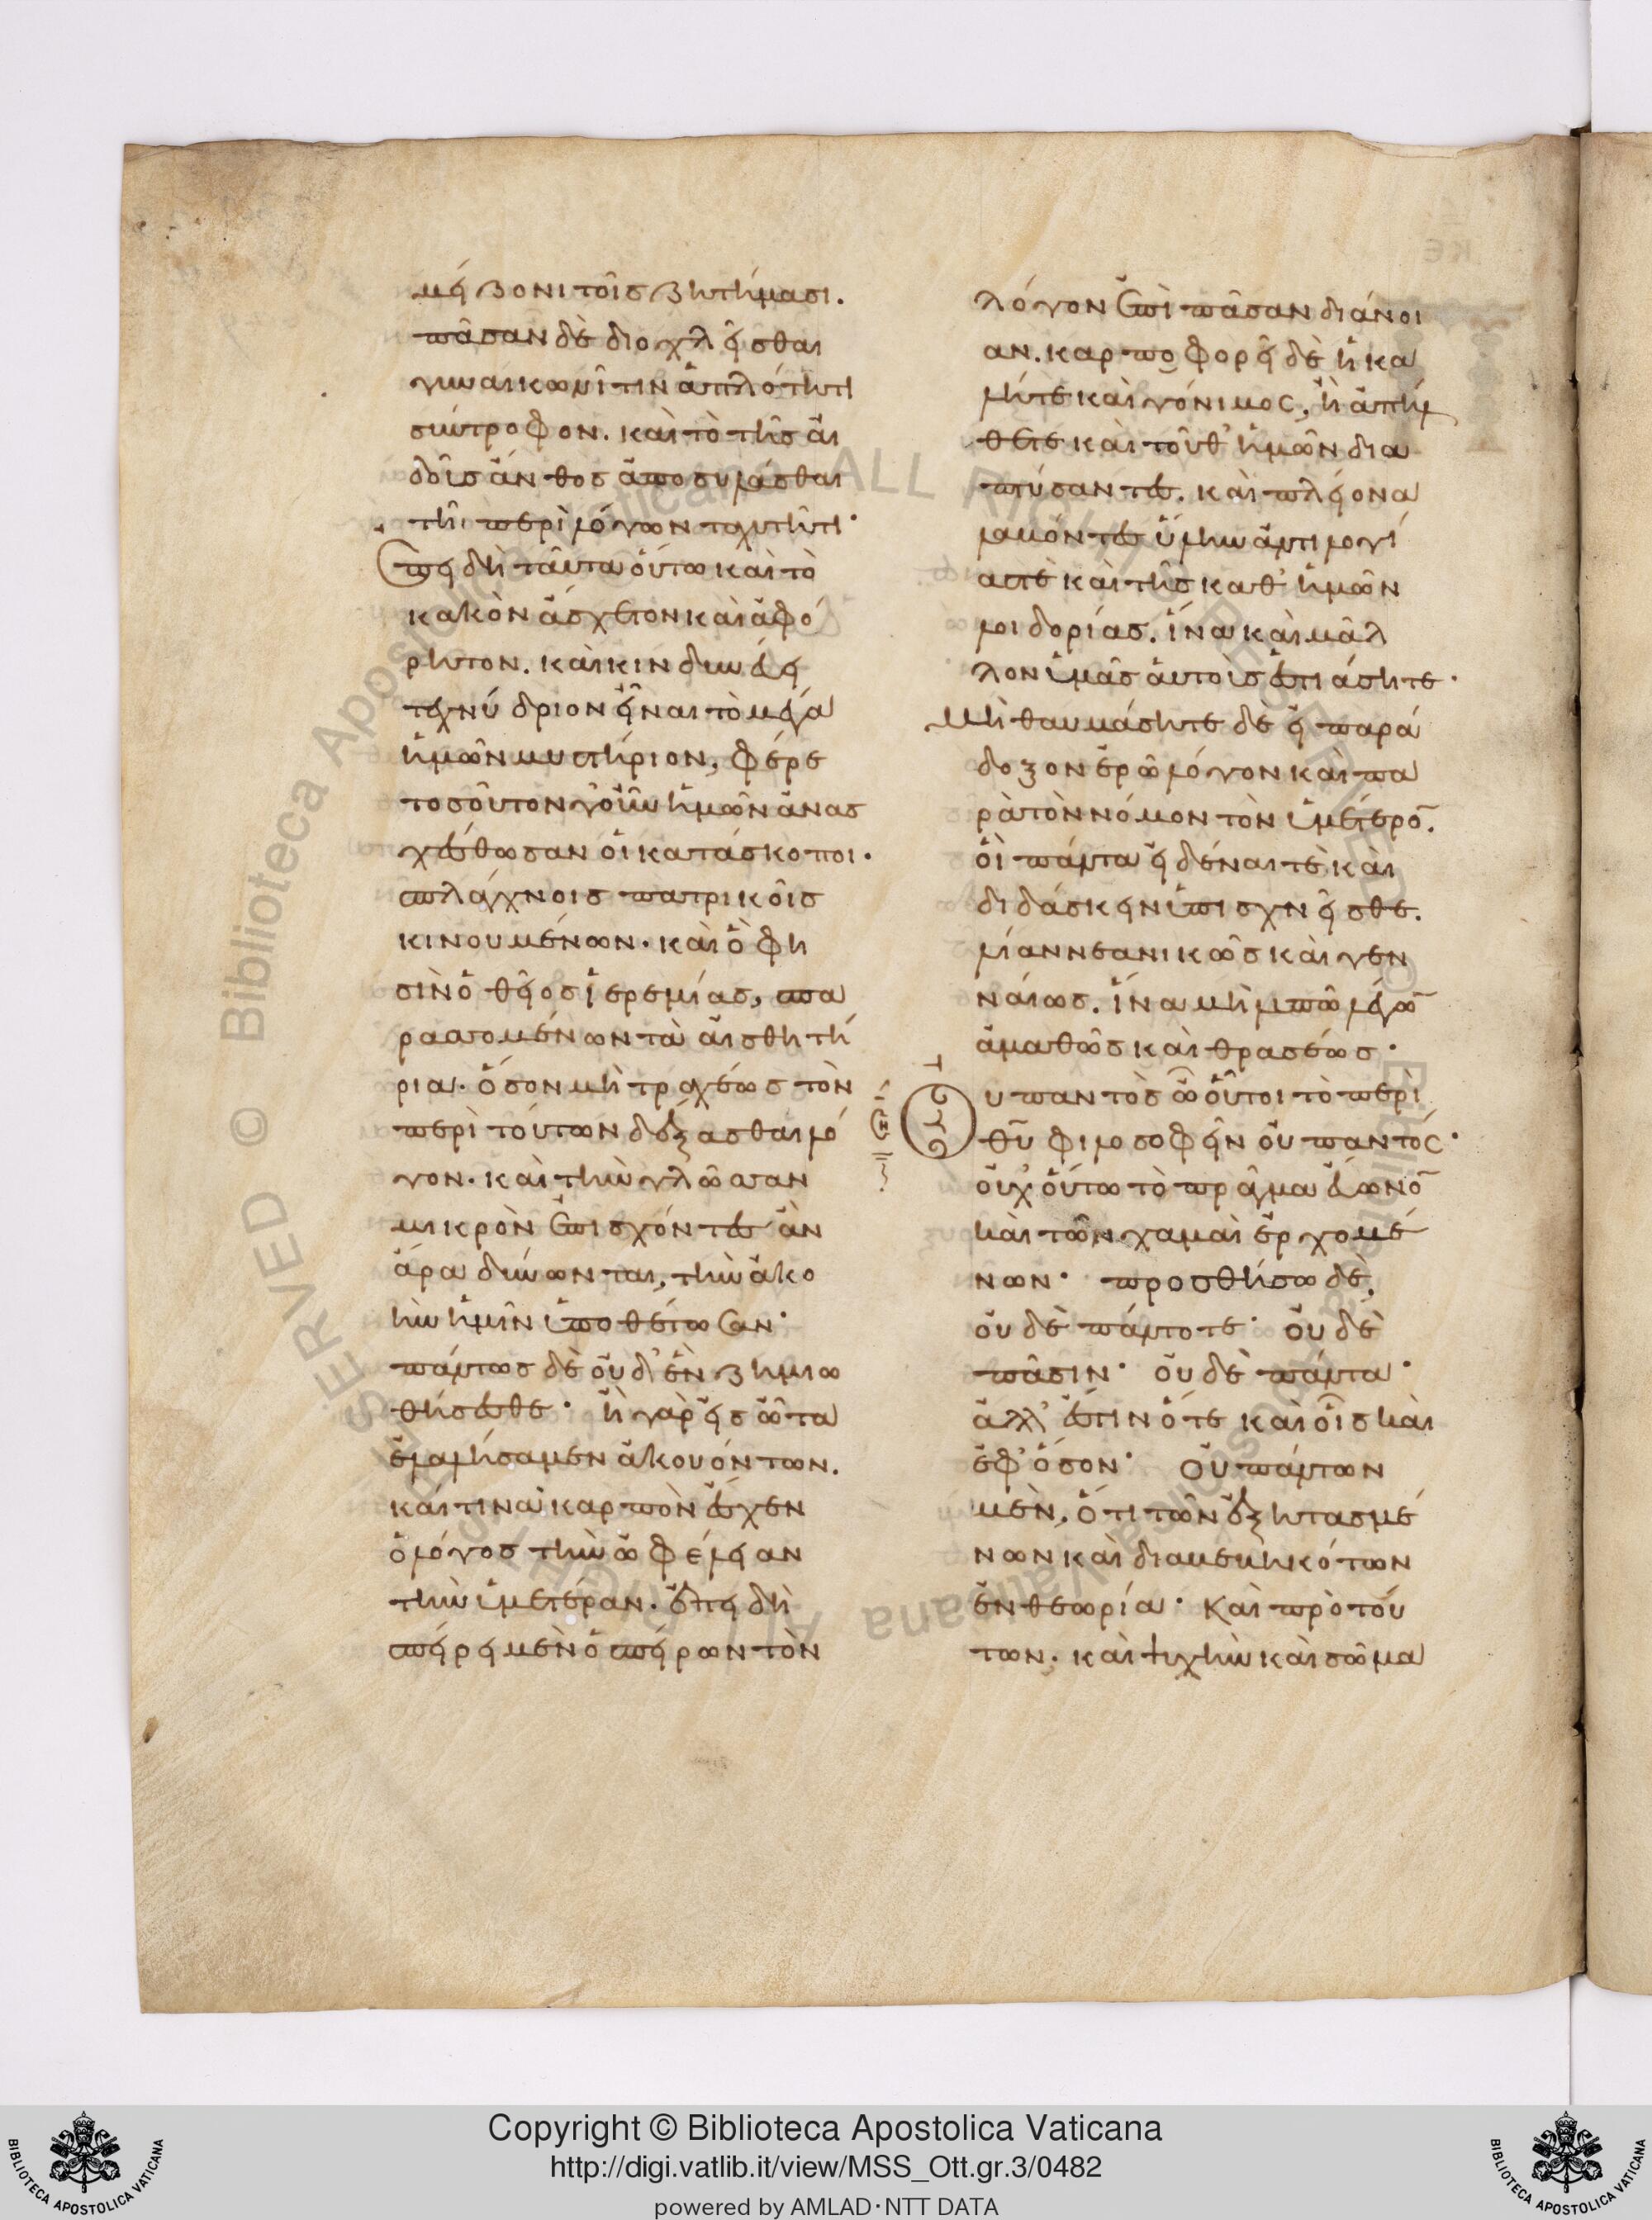 μείζονι τοῖς ζητήμασι.
πᾶσαν δὲ διοχλεῖσθαι
γυναικωνῖτιν ἁπλότητι
σύντροφον. καὶ τὸ τῆς αἰ
δοῖς ἄνθος ἀποσυλᾶσθαι
τῆι περὶ λόγων ταχυτῆτι·
ἐπεὶ δὴ ταῦτα οὕτω καὶ τὸ
κακὸν ἄσχετον καὶ ἀφό
ρητον. καὶ κινδυνεύει
τεχνύδριον εἶναι τὸ μέγα
ἡμῶν μυστήριον, φέρε
τοσοῦτον γοῦν ἡμῶν ἀνασ
χέσθωσαν οἱ κατάσκοποι.
σπλάγχνοις πατρικοῖς
κινουμένων. καὶ ὅ φη
σὶν ὁ θεῖος ἱερεμίας, σπα
ρασσομένων τὰ αἰσθητή
ρια. ὅσον μὴ τραχέως τὸν
περὶ τούτων δέξασθαι λό
γον. καὶ τὴν γλῶσσαν
μικρὸν ἐπισχόντες ἂν
ἄρα δύνωνται, τὴν ἀκο
ὴν ἡμῖν ὑποθέτωσαν·
πάντως δὲ οὐδ' ἐν ζημιω
θήσεσθε· ἢ γὰρ εἰς ὦτα
ἐλαλήσαμεν ἀκουόντων.
καί τινα καρπὸν ἔσχεν
ὁ λόγος τὴν ὠφέλειαν
τὴν ὑμετέραν. ἐπεὶ δὴ
σπείρει μὲν ὁ σπείρων τὸν
λόγον ἐπὶ πᾶσαν διάνοι
αν. καρποφορεῖ δὲ ἡ κα
λή τε καὶ γόνιμος, ἢ ἀπήλ
θετε καὶ τοῦθ' ἡμῶν δια
πτύσαντες. καὶ πλείονα
λαβόντες ὕλην ἀντιλογί
ας τὲ καὶ τῆς καθ' ἡμῶν
λοιδορίας. ἵνα καὶ μᾶλ
λον ὑμᾶς αὐτοὺς ἑστιάσητε·
Μὴ θαυμάσητε δὲ εἰ παρά
δοξον ἐρῶ λόγον καὶ πα
ρὰ τὸν νόμον τὸν ὑμέτερο̅.
οἳ πάντα εἰδέναι τὲ καὶ
διδάσκειν ὑπισχνεῖσθε.
λίαν νεανικῶς καὶ γεν
ναίως. ἵνα μὴ λυπῶ λέγω̅
ἀμαθῶς καὶ θρασέως·
Οὐ παντὸς ὦ οὗτοι τὸ περὶ
θ̅υ̅ φιλοσοφεῖν οὐ παντός·
οὐχ οὕτω τὸ πρᾶγμα εὔωνο̅
καὶ τῶν χαμαὶ ἐρχομέ
νων· προσθήσω δὲ,
οὐδὲ πάντοτε· οὐδὲ
πᾶσιν· οὐδὲ πάντα·
ἀλλ' ἔστιν ὅτε καὶ οἷς καὶ
ἐφ' ὅσον· Οὐ πάντων
μὲν, ὅτι τῶν ἐξητασμέ
νων καὶ διαβεβηκότων
ἐν θεωρία· Καὶ πρὸ τού
των. καὶ ψυχὴν καὶ σῶμα
Copyright © Biblioteca Apostolica Vaticana
http://digi.vatlib.it/view/MSS_Ott.gr.3/0482
powered by AMLAD·NTT DATA